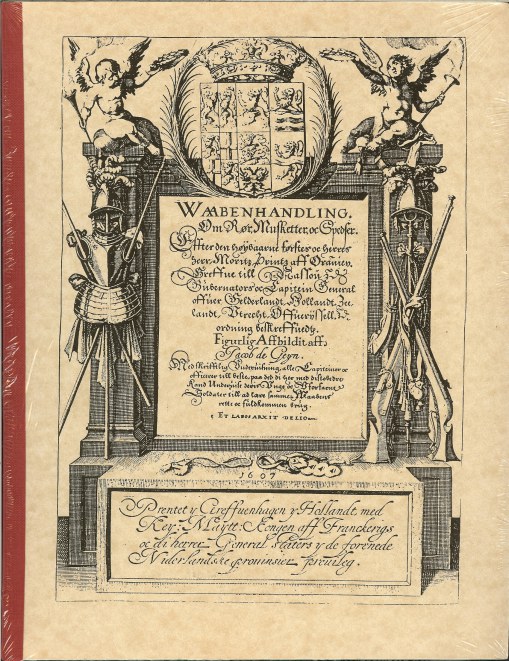 WAABENHANDLING.
Om Rør, Musketter, oc Spedser.
Effter den høybaarne førstes oc herris
herr Moritz Printz aff Oranien,
Greffue till Nassou &c.
Gubernators oc Capitein General
offuer Gelderlandt, Hollandt, Zee
landt, Vtrecht, Offueryssell, &c.
ordning beskreffuedt,
Figurlig Affbildit aff,
Jacob de Geyn.
Med skrifftlig Vnderuisning, alle Capiteiner oc
officerer till beste, paa det di her med disto bedre
Kand Vnderuise deris Vnge oc Vforfarne
Soldater till at lære sammes Waabens
rette oc fuldkommen brug.
ET LABOR ARXIT DE LIO
1607
Prentet y Greffuenhagen y Hollandt, med
Key: Maytt: Kongen aff Franckerigs
oc di herrer General staters y de forenede
Niderlandske prouinsier preuileg.